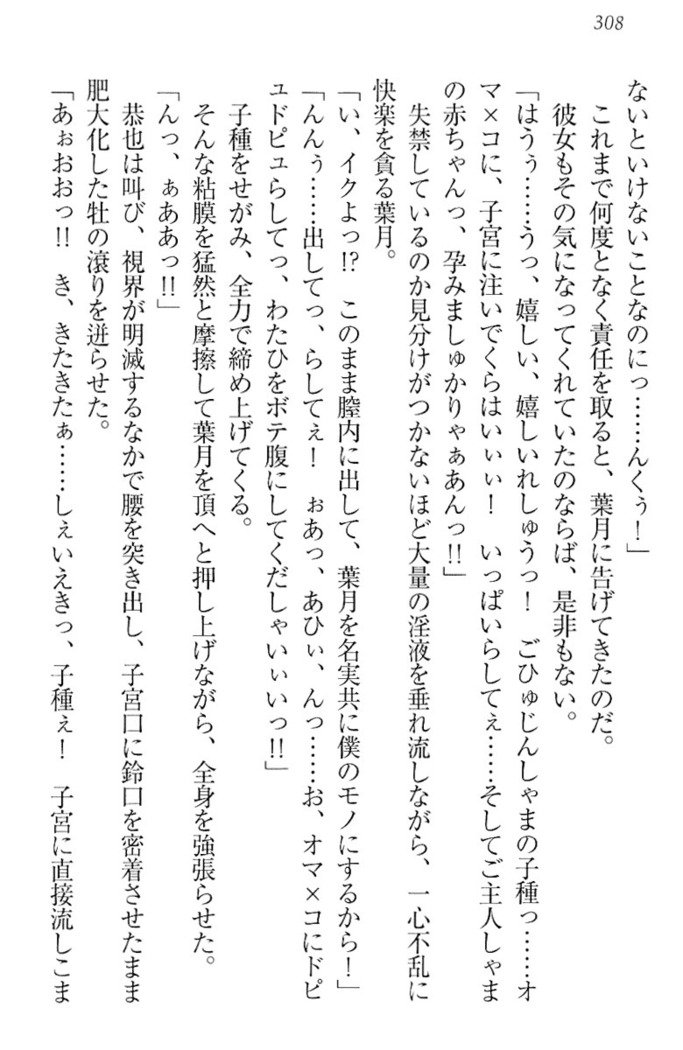 308
ないといけないことなのにっ……んくぅ！」
これまで何度となく責任を取ると、葉月に告げてきたのだ。
彼女もその気になってくれていたのならば、是非もない。
「はうぅ……うっ、嬉しい、嬉しいれしゅうっ！　ごひゅじんしゃまの子種っ……オ
マ×コに、子宮に注いでくらはいぃぃ！　いっぱいらしてぇ……そしてご主人しゃま
の赤ちゃんっ、孕みましゅかりゃぁあんっ!!」
失禁しているのか見分けがつかないほど大量の淫液を垂れ流しながら、一心不乱に
快楽を貪る葉月。
「い、イクよっ!?　このまま膣内に出して、葉月を名実共に僕のモノにするから！」
「んんぅ……出してっ、らしてぇ！　ぉあっ、あひぃ、んっ……お、オマ×コにドピ
ュドピュらしてっ、わたひをボテ腹にしてくだしゃいぃいっ!!」
子種をせがみ、全力で締め上げてくる。
そんな粘膜を猛然と摩擦して葉月を頂へと押し上げながら、全身を強張らせた。
「んっ、ぁああっ!!」
恭也は叫び、視界が明滅するなかで腰を突き出し、子宮口に鈴口を密着させたまま
肥大化した牡の滾りを迸らせた。
「あぉおおっ!!　き、きたきたぁ……しぇいえきっ、子種ぇ！　子宮に直接流しこま